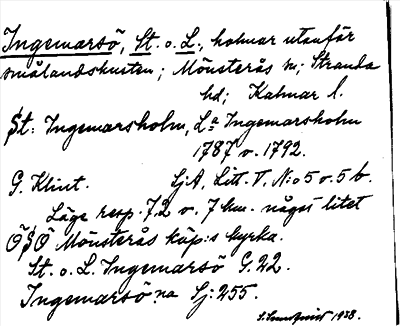 Ingemarsö, St. o. L., holmar utanför
smålandskusten; Mönsterås sn; Stranda
hd; Kalmar l.
St: Ingemarsholm, L:a Ingemarsholm
1787 o. 1792.
G. Klint. SjA, Litt. V, N:o 5 o. 5 b.
Läge resp. 7,2 o. 7 km. något litet
ÖSÖ Mönsterås köp:s kyrka.
St. o. L. Ingemarsö G. 22.
Ingemarsö:na Sj: 255.
1938.